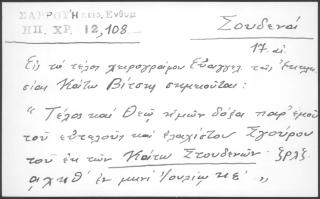 ΣΑΡΡΟΥ Ησειο, Ενθυμ
ΗΠ. ΧΡ. 12, 108
Σουδενά
17 αι.
Εις το τέλος χειρογράφου Ευαγγελ. της Εκκλη-
σίας Κάτω Βίτσης σημειούται:
" Τέλος καί Θεῷ ἡμῶν δόξα παρ' ἐμοῦ
τοῦ εὐτελοῦς καί ἐλαχίστου Σγούρου
τοῦ ἐκ τῶν Κάτω Στουδενῶν ζρλζ
αχκθ' ἐν μηνί Ἰουλίῳ κε' "